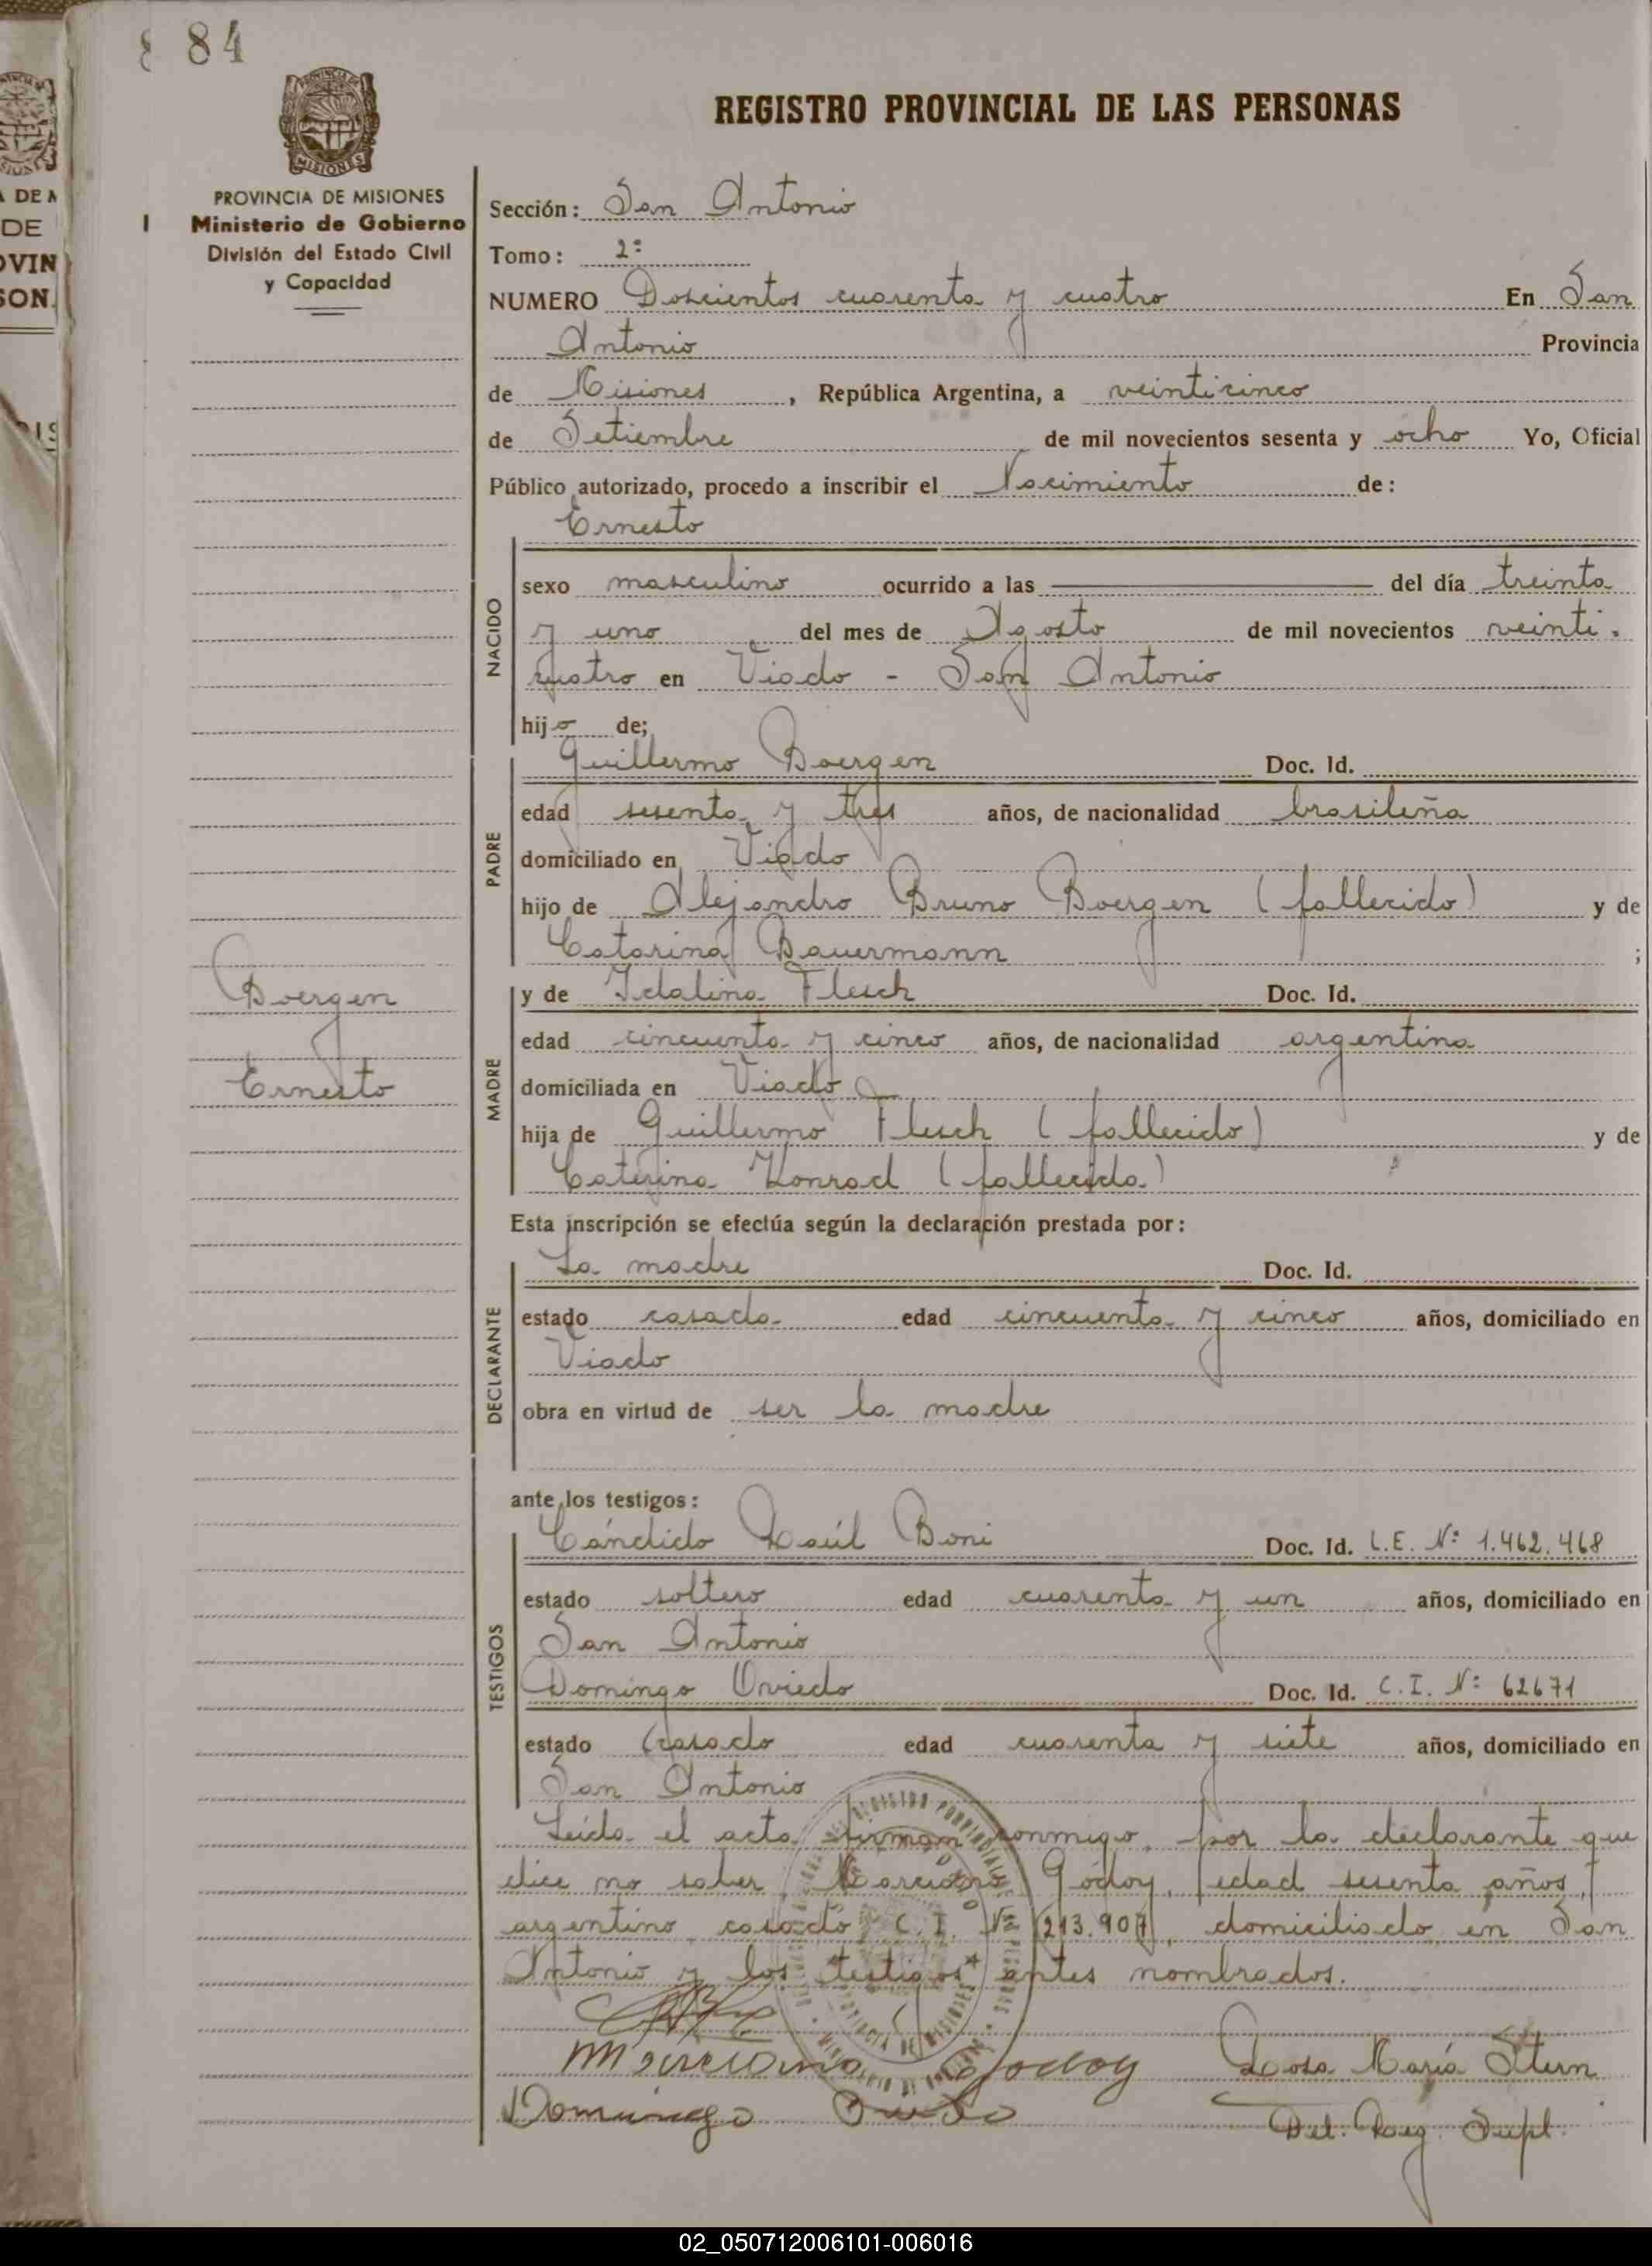 84
REGISTRO PROVINCIAL DE LAS PERSONAS
MISIONES
PROVINCIA DE MISIONES
Ministerio de Gobierno
División del Estado Civil
y Capacidad
Sección: San Antonio
Tomo: 2º
NUMERO Doscientos cuarenta y cuatro En San
Antonio Provincia
de Misiones, República Argentina, a veinticinco
de Setiembre de mil novecientos sesenta y ocho Yo, Oficial
Público autorizado, procedo a inscribir el Nacimiento de:
Ernesto
NACIDO
sexo masculino ocurrido a las ——— del día treinta
y uno del mes de Agosto de mil novecientos veinti.
cuatro en Viado - San Antonio
hijo de;
PADRE
Guillermo Boergen Doc. Id.
edad sesenta y tres años, de nacionalidad brasileña
domiciliado en Viado
hijo de Alejandro Bruno Boergen (fallecido) y de
Catarina Bauermann ;
Boergen
Ernesto
MADRE
y de Idalina Flesch Doc. Id.
edad cincuenta y cinco años, de nacionalidad argentina
domiciliada en Viado
hija de Guillermo Flesch (fallecido) y de
Caterina Konrad (fallecida)
Esta inscripción se efectúa según la declaración prestada por:
DECLARANTE
La madre Doc. Id.
estado casada edad cincuenta y cinco años, domiciliado en
Viado
obra en virtud de ser la madre
ante los testigos:
TESTIGOS
Cándido Raúl Boni Doc. Id. L.E. Nº 1.462.468
estado soltero edad cuarenta y un años, domiciliado en
San Antonio
Domingo Oviedo Doc. Id. C.I. Nº 62671
estado casado edad cuarenta y siete años, domiciliado en
San Antonio
Leída el acta, firman conmigo, por la declarante que
dice no saber, Marciano Godoy, edad sesenta años,
argentino, casado, C.I. Nº 213.907, domiciliado en San
Antonio y los testigos antes nombrados.
Marciano Godoy Rosa María Stern
Domingo Oviedo Del. Reg. Supl.
02_050712006101-006016